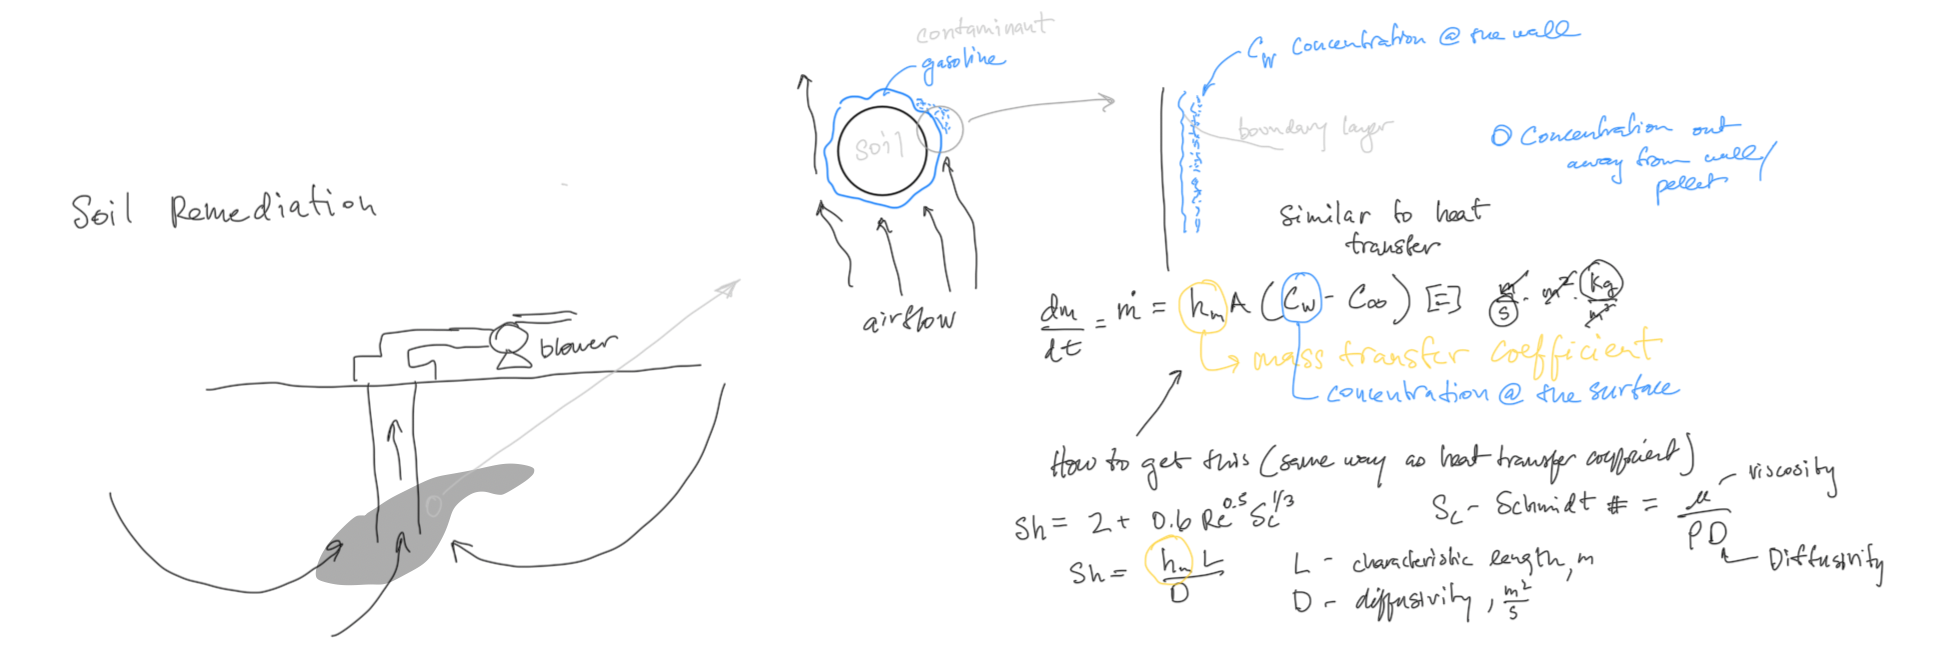 Soil Remediation
blower
contaminant
gasoline
Soil
airflow
C_w concentration @ the wall
boundary layer
O Concentration out
away from wall/
pellet
Similar to heat
transfer
dm/dt = ṁ = h_m A (C_w - C_∞) [=] m/s · m² · kg/m³
mass transfer coefficient
concentration @ the surface
How to get this (same way as heat transfer coefficient)
Sh = 2 + 0.6 Re^0.5 Sc^1/3
Sc - Schmidt # = μ/ρD
viscosity
Diffusivity
Sh = h_m L/D
L - characteristic length, m
D - diffusivity, m²/s